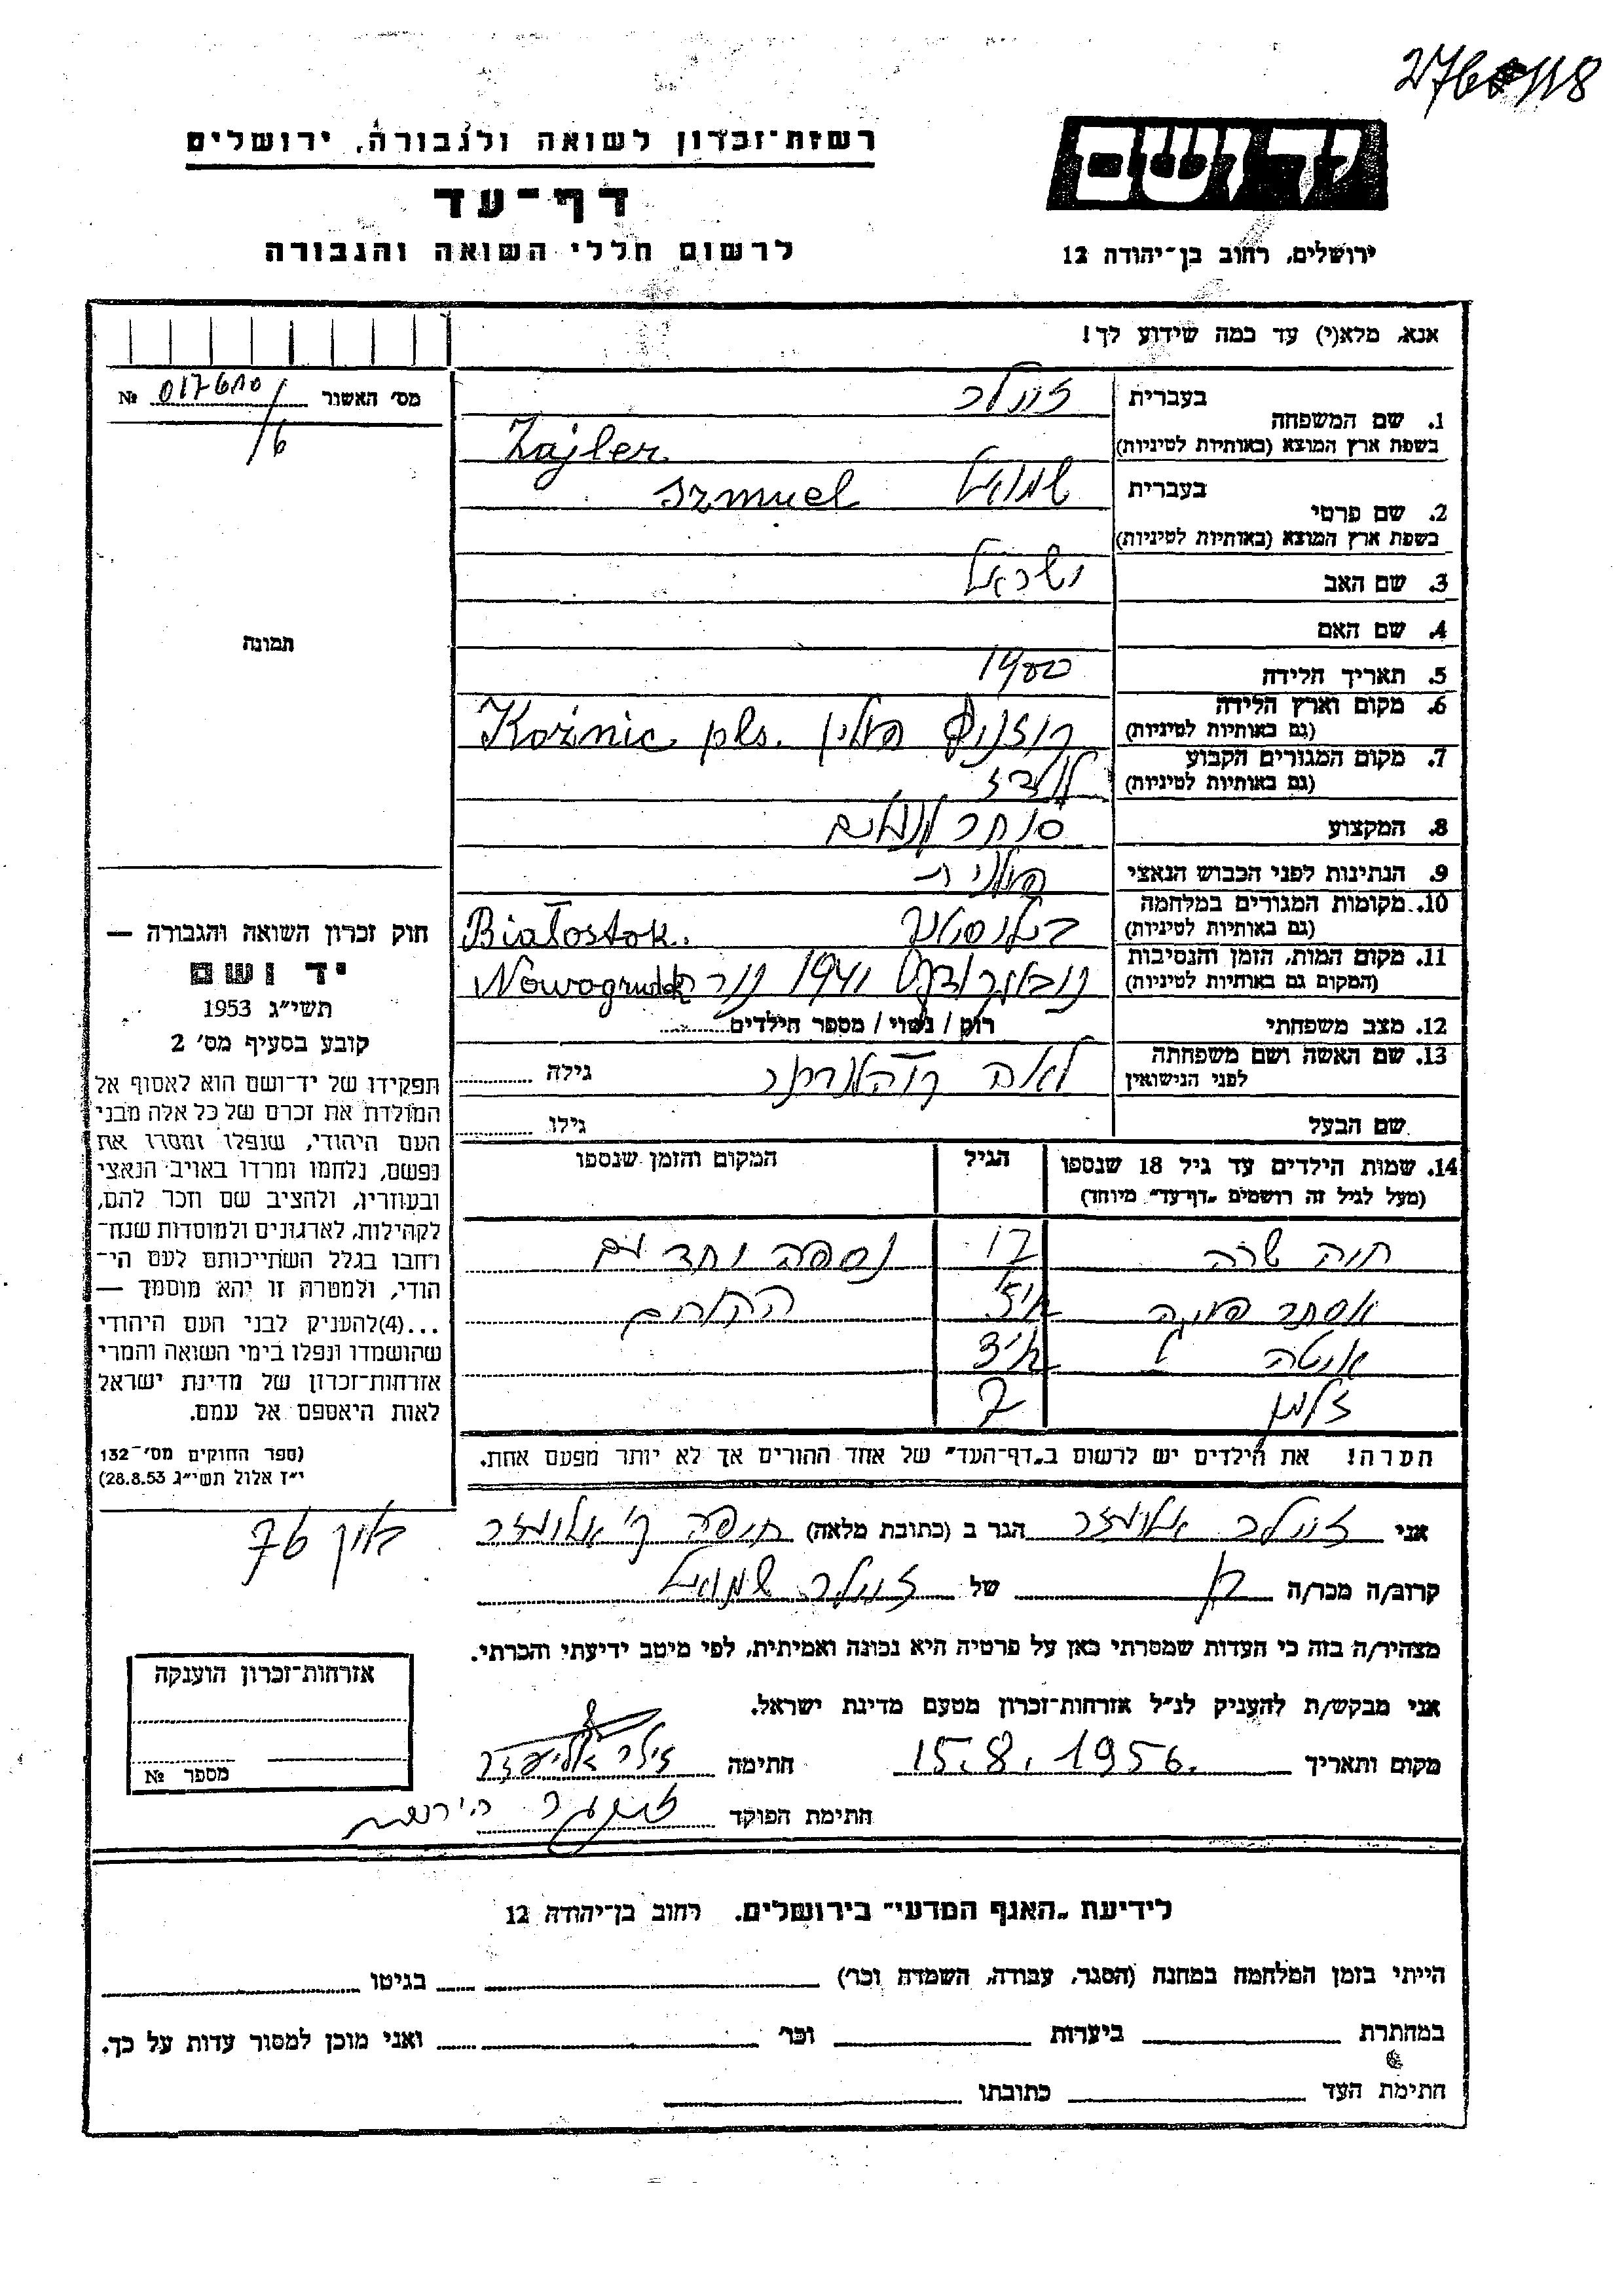 רשות־זכרון לשואה ולגבורה, ירושלים
דף־עד
לרשום חללי השואה והגבורה
יד ושם
ירושלים, רחוב בן־יהודה 12
אנא, מלא(י) עד כמה שידוע לך!
מס' האשור № 017680
/6
1. שם המשפחה
בעברית זיילר
בשפת ארץ המוצא (באותיות לטיניות) Zajler
2. שם פרטי
בעברית שמואל Szmuel
בשפת ארץ המוצא (באותיות לטיניות)
3. שם האב ישראל
4. שם האם
5. תאריך הלידה 1900
6. מקום וארץ הלידה
(גם באותיות לטיניות) קוזניץ פולין Koźnic pls.
7. מקום המגורים הקבוע
(גם באותיות לטיניות) לודז
8. המקצוע סוחר
9. הנתינות לפני הכבוש הנאצי פולנית
10. מקומות המגורים במלחמה
(גם באותיות לטיניות) ביאליסטוק Białostok.
11. מקום המות, הזמן והנסיבות
(המקום גם באותיות לטיניות) 1941 Nowogrudok
12. מצב משפחתי רוק / נשוי / מספר הילדים
13. שם האשה ושם משפחתה
לפני הנישואין לאה גילה
שם הבעל גילו
14. שמות הילדים עד גיל 18 שנספו הגיל המקום והזמן שנספו
(מעל לגיל זה רושמים „דף־עד" מיוחד)
חיה שרה 17 נספה יחד עם
אסתר ההורים
אטה
זלמן 7
הערה! את הילדים יש לרשום ב„דף־העד" של אחד ההורים אך לא יותר מפעם אחת.
תמונה
חוק זכרון השואה והגבורה —
יד ושם
תשי"ג 1953
קובע בסעיף מס' 2
תפקידו של יד־ושם הוא לאסוף אל
המולדת את זכרם של כל אלה מבני
העם היהודי, שנפלו ומסרו את
נפשם, נלחמו ומרדו באויב הנאצי
ובעוזריו, ולהציב שם וזכר להם,
לקהילות, לארגונים ולמוסדות שנח־
רבו בגלל השתייכותם לעם הי־
הודי, ולמטרה זו יהא מוסמך —
...(4)להעניק לבני העם היהודי
שהושמדו ונפלו בימי השואה והמרי
אזרחות־זכרון של מדינת ישראל
לאות היאספם אל עמם.
(ספר החוקים מס' 132
י"ז אלול תשי"ג 28.8.53)
אני זיילר אליעזר הגר ב (כתובת מלאה) חיפה ק' אליעזר
קרוב/ה מכר/ה בן של זיילר שמואל
מצהיר/ה בזה כי העדות שמסרתי כאן על פרטיה היא נכונה ואמיתית, לפי מיטב ידיעתי והכרתי.
אני מבקש/ת להעניק לנ"ל אזרחות־זכרון מטעם מדינת ישראל.
מקום ותאריך 15.8.1956 חתימה זילר אליעזר
חתימת הפוקד
אזרחות־זכרון הוענקה
מספר №
לידיעת „האגף המדעי" בירושלים. רחוב בן־יהודה 12
הייתי בזמן המלחמה במחנה (הסגר, עבודה, השמדה וכר') בגיטו
במחתרת ביערות וכר' ואני מוכן למסור עדות על כך.
חתימת העד כתובתו